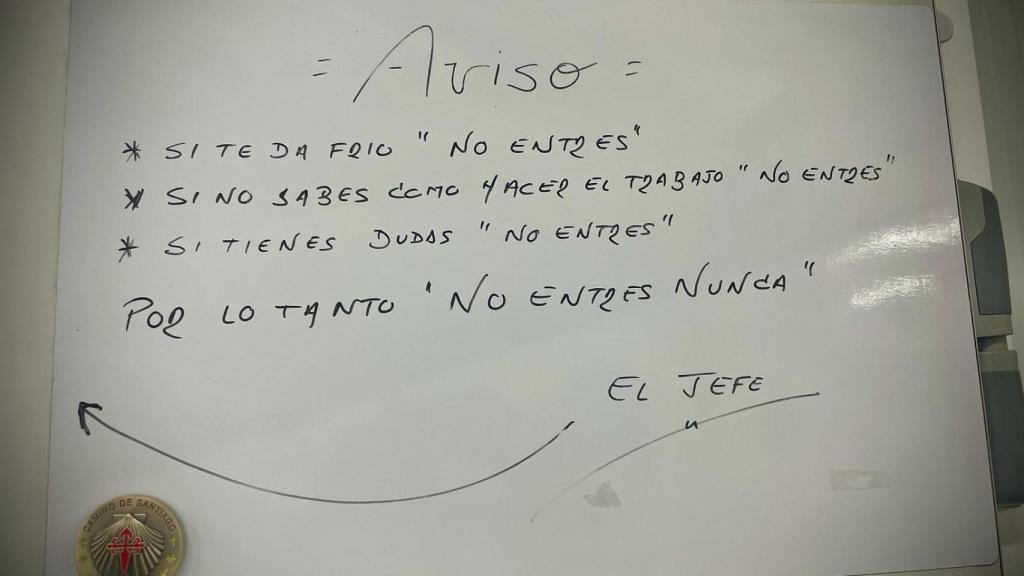 = Aviso =
* SI TE DA FRIO " NO ENTRES"
* SI NO SABES COMO HACER EL TRABAJO "NO ENTRES"
* SI TIENES DUDAS "NO ENTRES"
POR LO TANTO "NO ENTRES NUNCA"
EL JEFE
CAMINO DE SANTIAGO